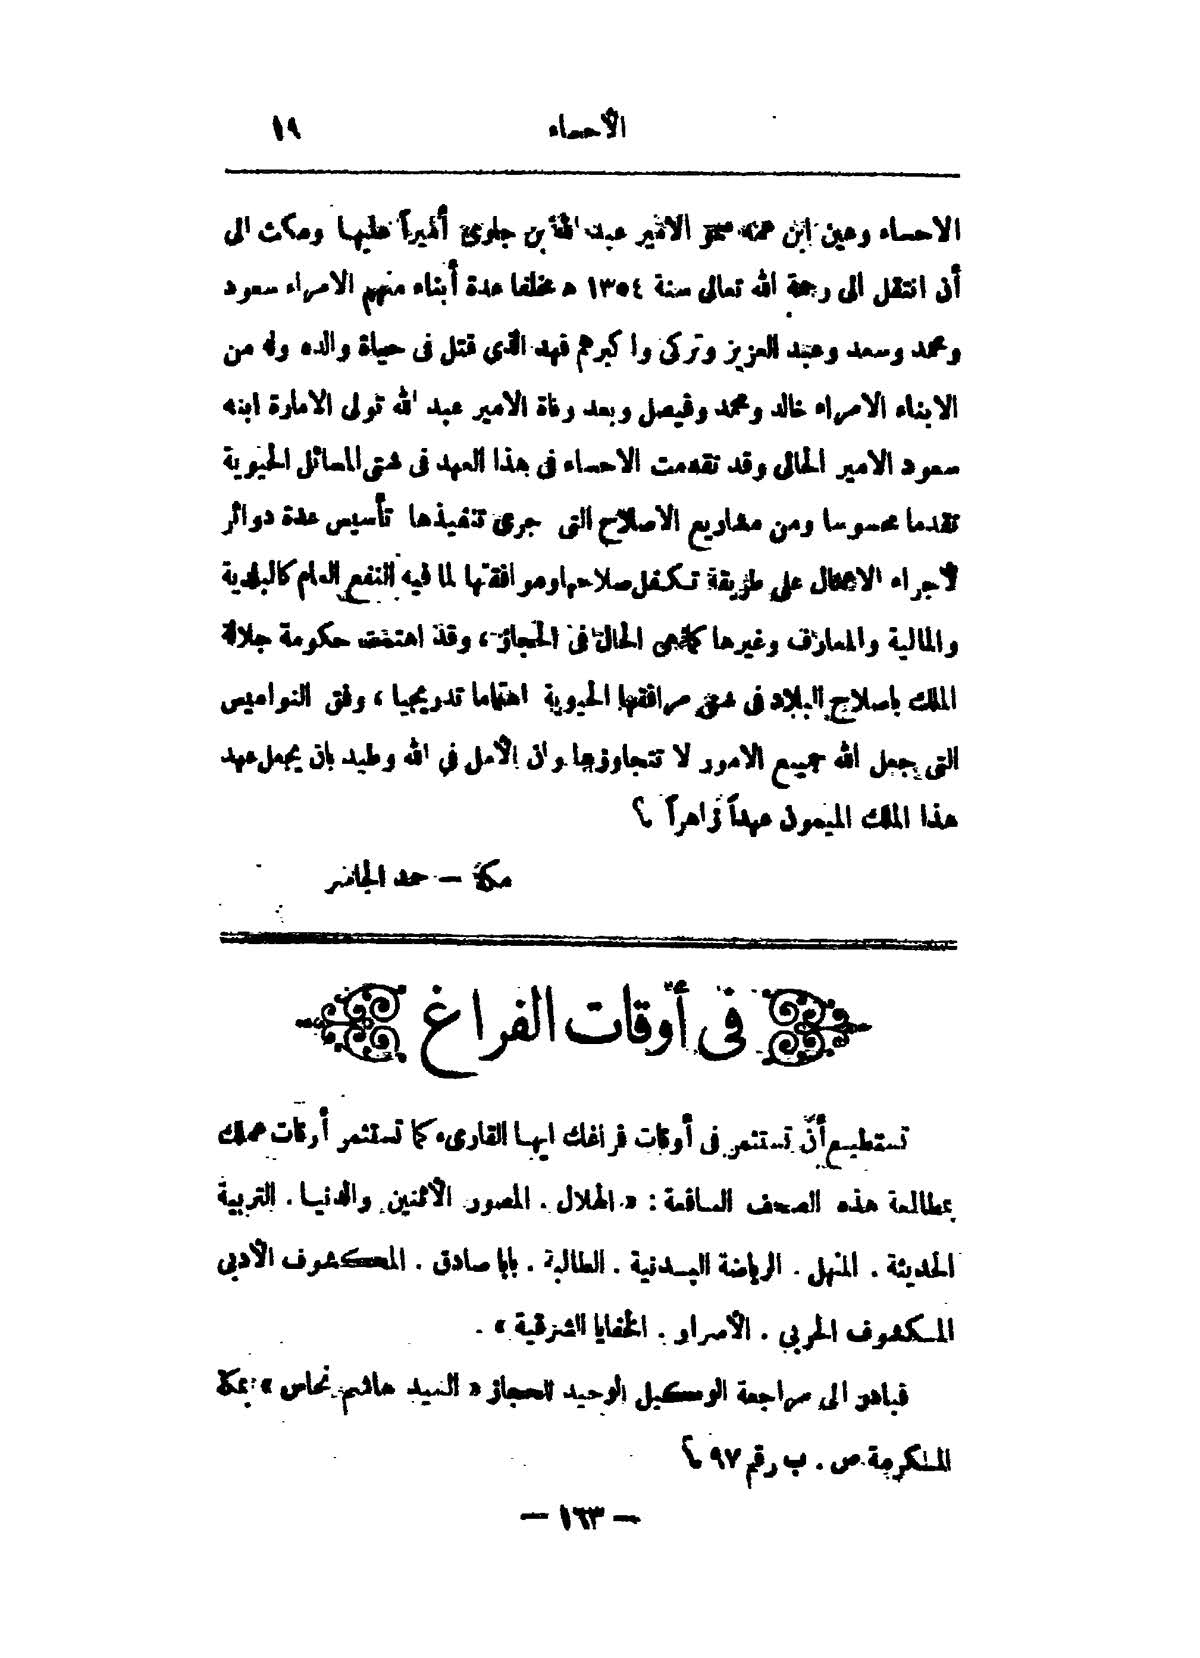 الأحساء
١٩
الاحساء وعين ابن عمه سمو الامير عبد الله بن جلوي أميراً عليها ومكث الى
أن انتقل الى رحمة الله تعالى سنة ١٣٥٤ ه مخلفا عدة أبناء منهم الامراء سعود
ومحمد وسعد وعبد العزيز وتركى واكبرهم فهد الذى قتل فى حياة والده وله من
الابناء الامراء خالد ومحمد وفيصل وبعد وفاة الامير عبد الله تولى الامارة ابنه
سعود الامير الحالى وقد تقدمت الاحساء فى هذا العهد فى شتى المسائل الحيوية
تقدما محسوسا ومن مشاريع الاصلاح التى جرى تنفيذها تأسيس عدة دوائر
لأجراء الاعمال على طريقة تكفل صلاحها وموافقتها لما فيه النفع العام كالبلدية
والمالية والمعارف وغيرها كما هى الحال فى الحجاز ، وقد اهتمت حكومة جلالة
الملك باصلاح البلاد فى شتى مرافقها الحيوية اهتماما تدريجيا ، وفق النواميس
التى جعل الله جميع الامور لا تتجاوزها وان الأمل في الله وطيد بان يجعل عهد
هذا الملك الميمون عهداً زاهراً ؟
مكة — حمد الجاسر
فى أوقات الفراغ
تستطيع أن تستثمر فى أوقات فراغك ايها القارىء كما تستثمر أوقات عملك
بمطالعة هذه الصحف النافعة : « الهلال . المصور الأثنين والدنيا . التربية
الحديثة . المنهل . الرياضة البدنية . الطالبة . بابا صادق . المكشوف الأدبى
المكشوف الحربي . الأسرار . الخفايا الشرقية » .
فبادر الى مراجعة الوكيل الوحيد للحجاز « السيد هاشم نحاس » بمكة
المكرمة ص . ب رقم ٩٧ ؟
— ١٦٣ —